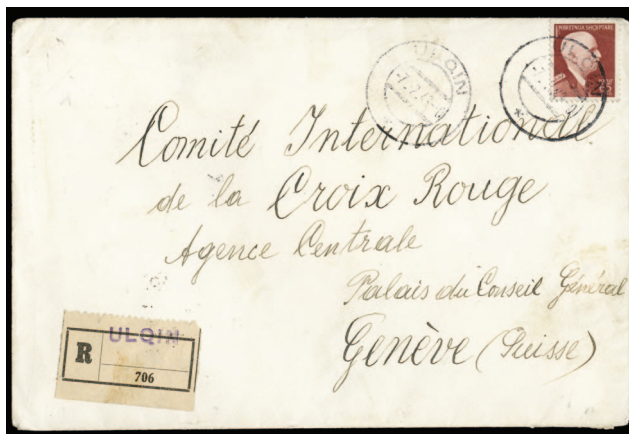 MBRETNIJA SHQIPTARE
ULQIN
Comité Internationale
de la Croix Rouge
Agence Centrale
Palais du Conseil Général
Genève (Suisse)
ULQIN
R
706